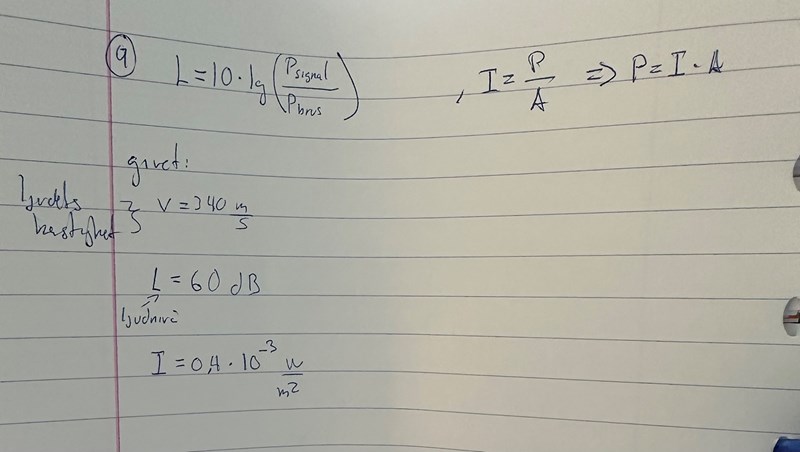 9 L = 10 · lg (Psignal / Pbrus) , I = P/A => P = I · A
givet:
ljudets hastighet } V = 340 m/s
L = 60 dB
ljudnivå
I = 0,4 · 10^-3 W/m²